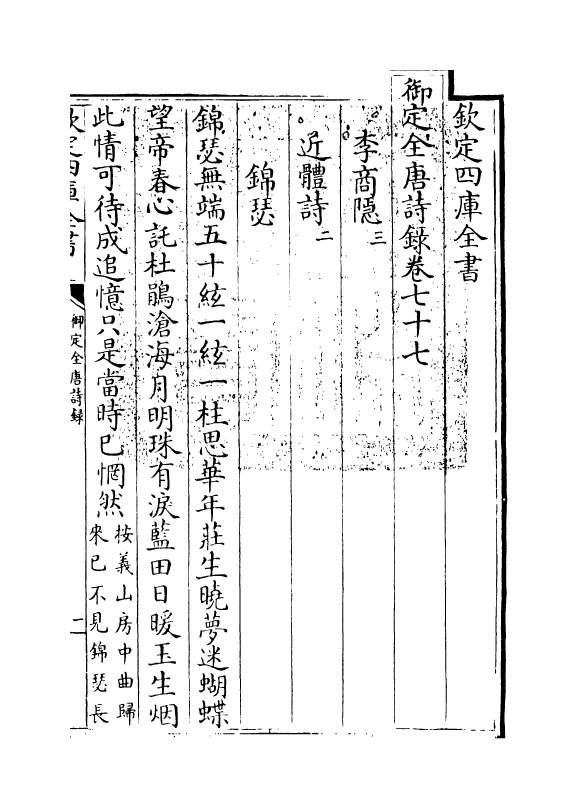 欽定四庫全書
御定全唐詩錄卷七十七
李商隱三
近體詩二
錦瑟
錦瑟無端五十絃一絃一柱思華年莊生曉夢迷蝴蝶
望帝春心託杜鵑滄海月明珠有淚藍田日暖玉生烟
此情可待成追憶只是當時已惘然
按義山房中曲歸
來已不見錦瑟長
欽定四庫全書
御定全唐詩錄